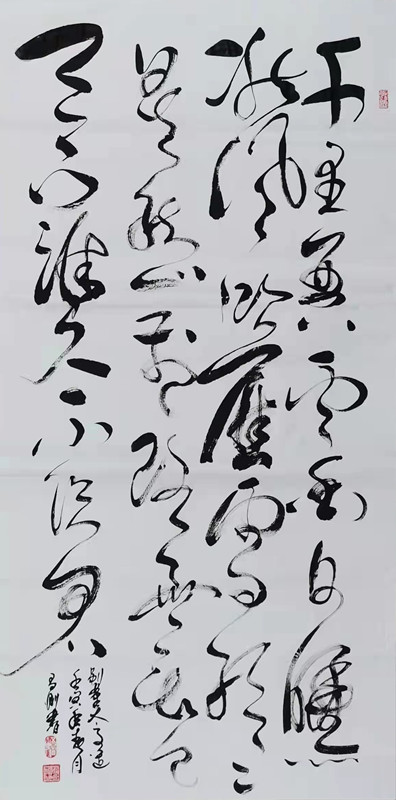 千里黄云白日曛
北风吹雁雪纷纷
莫愁前路无知己
天下谁人不识君
别董大 高适
壬寅年 月
刚书